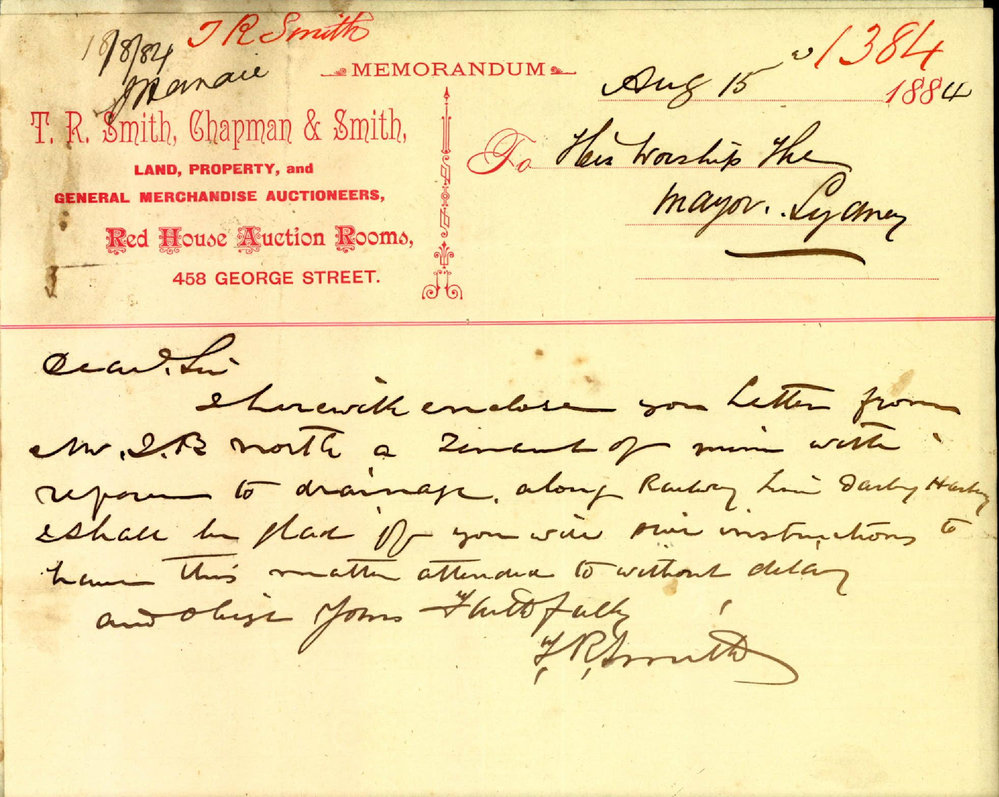 18/8/84
T R Smith
1384
MEMORANDUM
Aug 15 1884
T. R. Smith, Chapman & Smith,
LAND, PROPERTY, and
GENERAL MERCHANDISE AUCTIONEERS,
Red House Auction Rooms,
458 GEORGE STREET.
To His Worship The
Mayor. Sydney
Dear Sir
I herewith enclose you Letter from
Mr. J. B North a Tenant of mine with
to drainage, along Railway Line Darling Harbor
I shall be glad if you will give instructions to
have this matter attended to without delay
and oblige Yours Faithfully
T. R. Smith